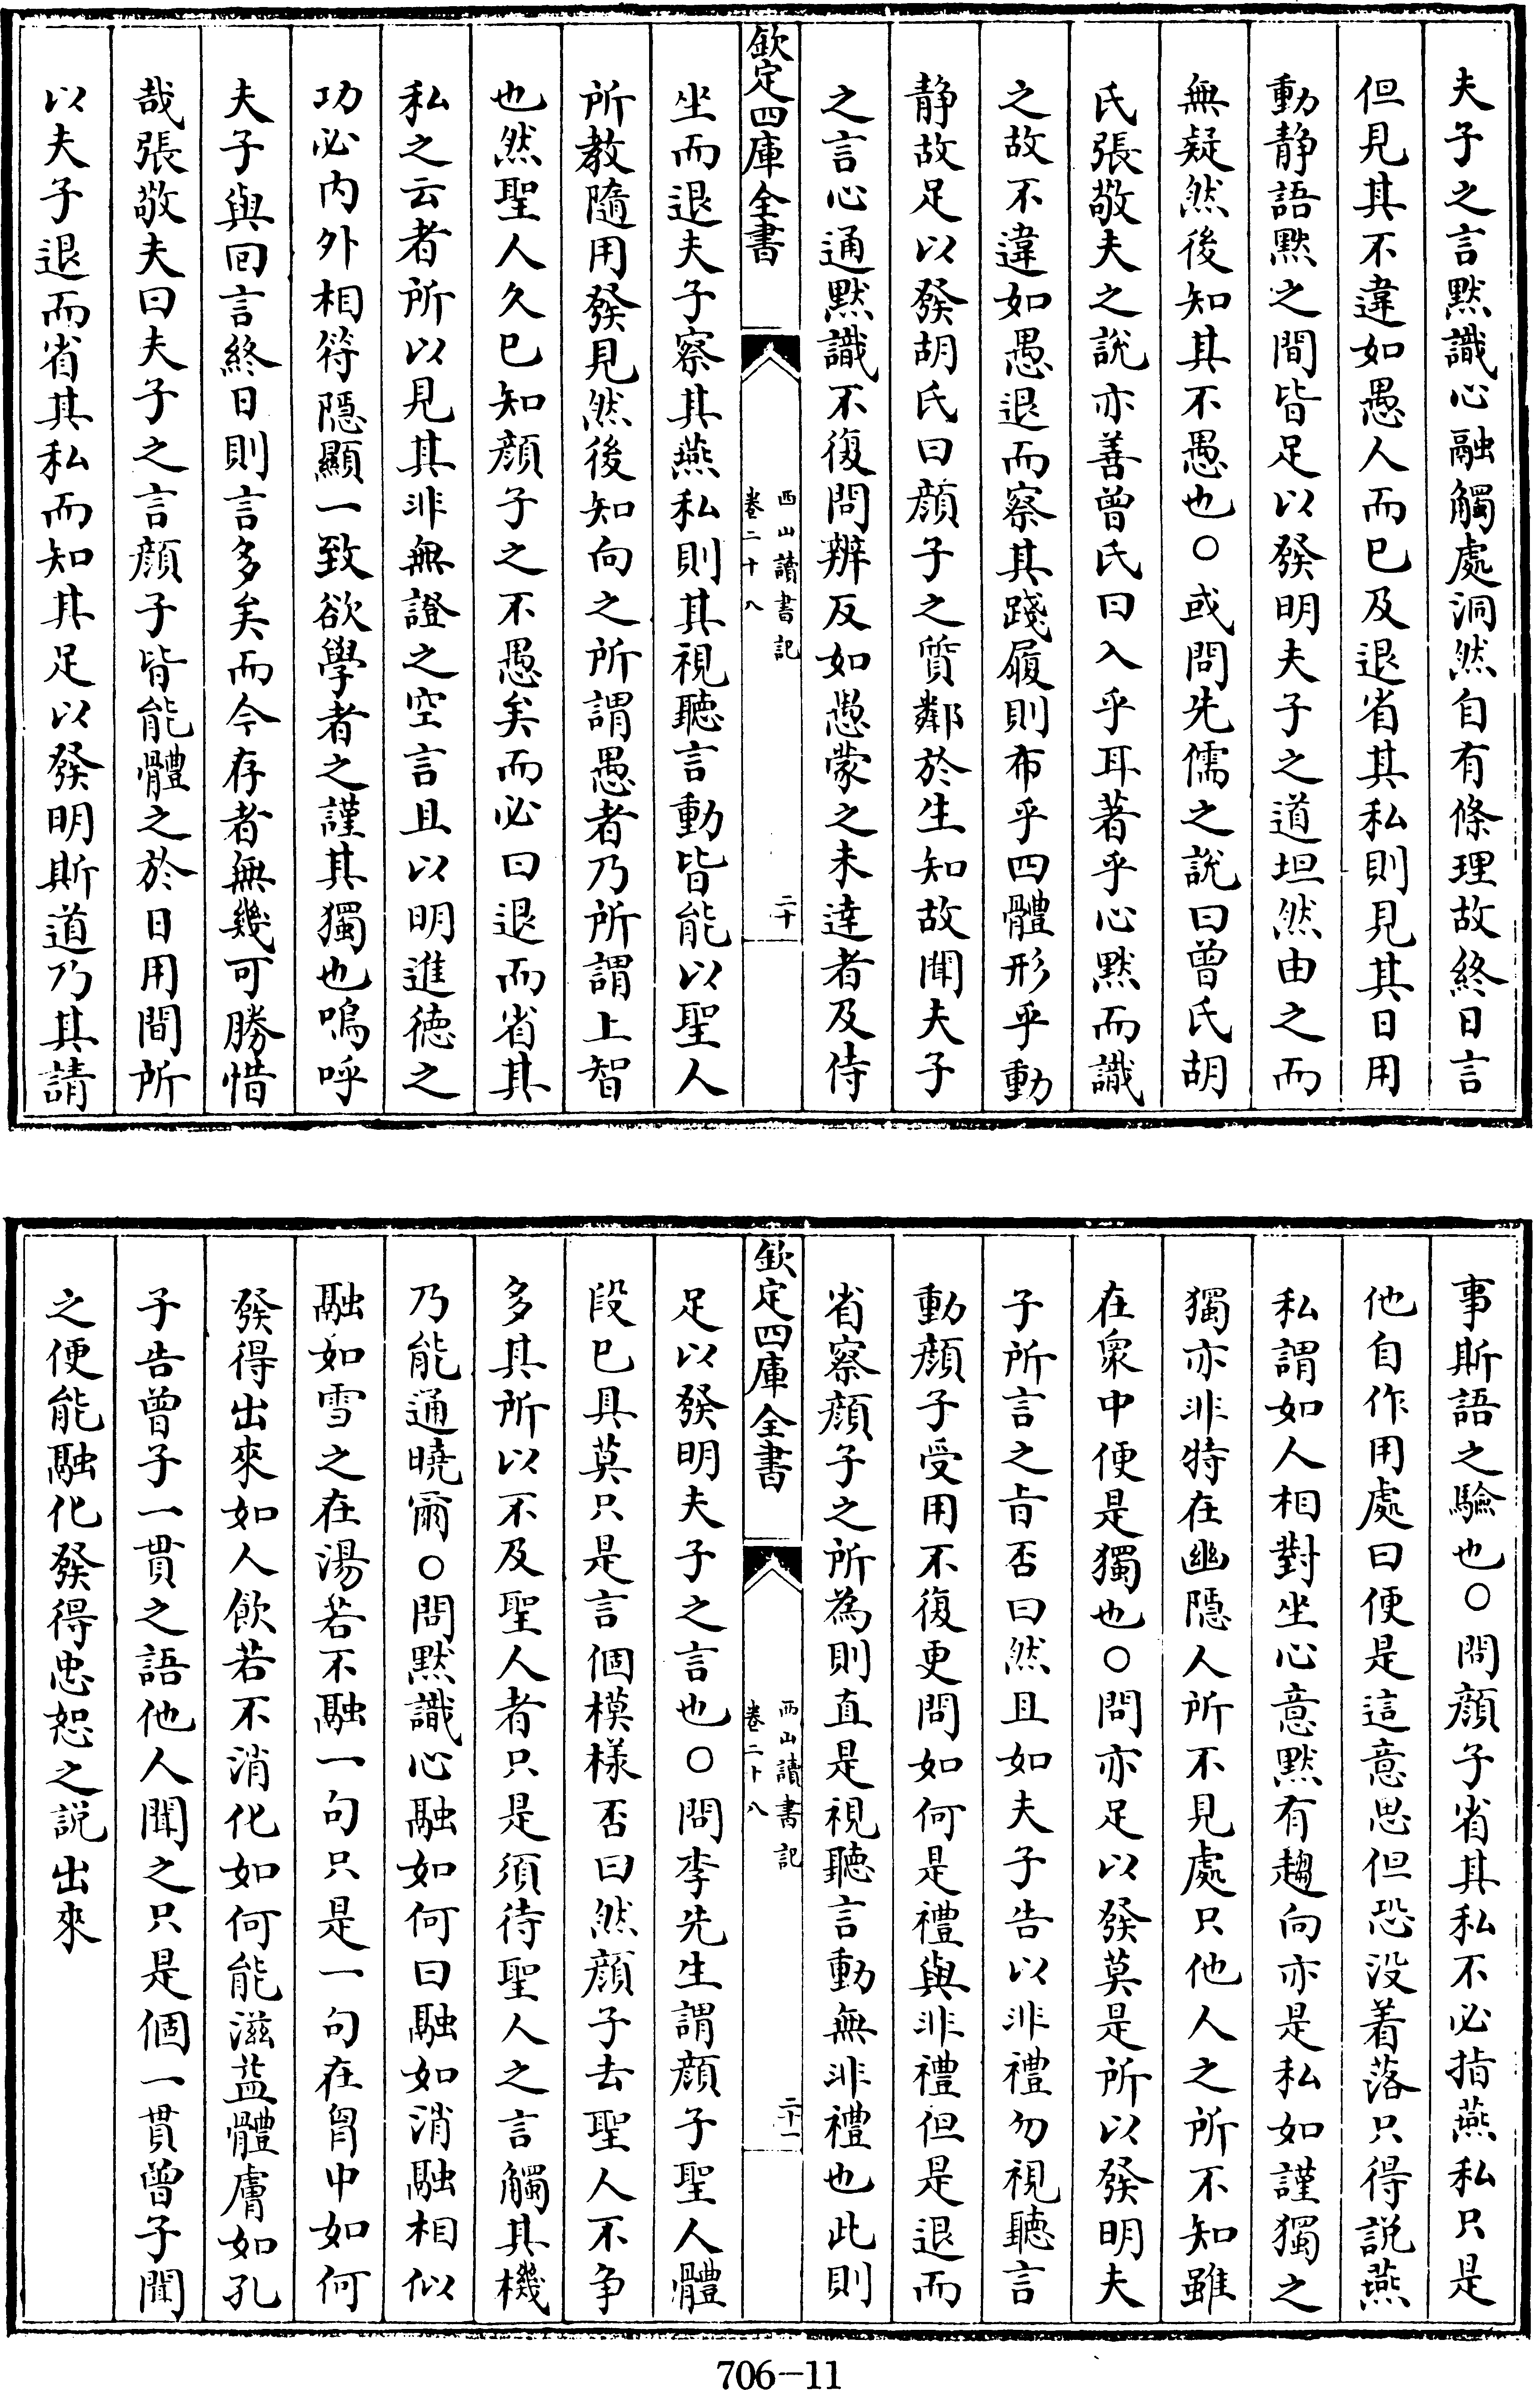 夫子之言黙識心融觸處洞然自有條理故終日言
但見其不違如愚人而已及退省其私則見其日用
動静語黙之間皆足以發明夫子之道坦然由之而
無疑然後知其不愚也○或問先儒之說曰曾氏胡
氏張敬夫之說亦善曾氏曰入乎耳著乎心黙而識
之故不違如愚退而察其踐履則布乎四體形乎動
静故足以發胡氏曰顔子之質鄰於生知故聞夫子
之言心通黙識不復問辨反如愚蒙之未達者及侍
欽定四庫全書
西山讀書記
卷二十八
二十
坐而退夫子察其燕私則其視聽言動皆能以聖人
所教隨用發見然後知向之所謂愚者乃所謂上智
也然聖人久已知顔子之不愚矣而必曰退而省其
私之云者所以見其非無證之空言且以明進徳之
功必内外相符隱顯一致欲學者之謹其獨也嗚呼
夫子與回言終日則言多矣而今存者無幾可勝惜
哉張敬夫曰夫子之言顔子皆能體之於日用間所
以夫子退而省其私而知其足以發明斯道乃其請
事斯語之驗也○問顔子省其私不必指燕私只是
他自作用處曰便是這意思但恐没着落只得説燕
私謂如人相對坐心意黙有趨向亦是私如謹獨之
獨亦非特在幽隱人所不見處只他人之所不知雖
在衆中便是獨也○問亦足以發莫是所以發明夫
子所言之㫖否曰然且如夫子告以非禮勿視聽言
動顔子受用不復更問如何是禮與非禮但是退而
省察顔子之所為則直是視聽言動無非禮也此則
欽定四庫全書
西山讀書記
卷二十八
二十一
足以發明夫子之言也○問李先生謂顔子聖人體
段已具莫只是言個模樣否曰然顔子去聖人不争
多其所以不及聖人者只是須待聖人之言觸其機
乃能通曉爾○問黙識心融如何曰融如消融相似
融如雪之在湯若不融一句只是一句在胷中如何
發得出來如人飲若不消化如何能滋益體膚如孔
子告曾子一貫之語他人聞之只是個一貫曾子聞
之便能融化發得忠恕之説出來
706-11